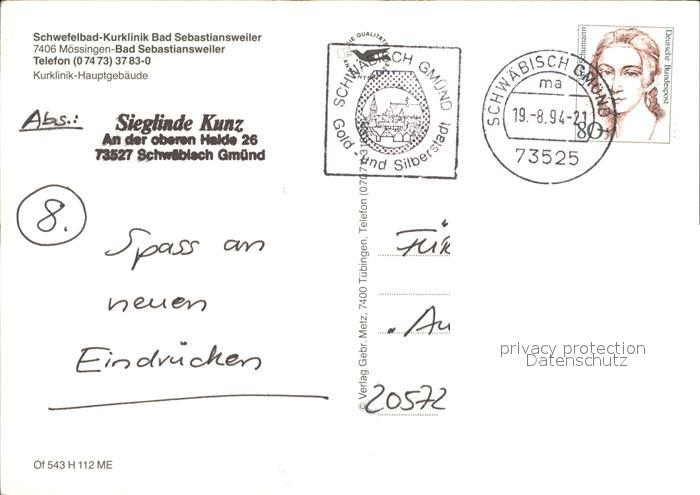 Schwefelbad-Kurklinik Bad Sebastiansweiler
7406 Mössingen-Bad Sebastiansweiler
Telefon (0 74 73) 37 83-0
Kurklinik-Hauptgebäude
Abs.:
Sieglinde Kunz
An der oberen Halde 26
73527 Schwäbisch Gmünd
8.
Spass an
neuen
Eindrücken
Of 543 H 112 ME
DIE QUALITÄT
SCHWÄBISCH GMÜND
Gold- und Silberstadt
© Verlag Gebr. Metz, 7400 Tübingen, Telefon (070
SCHWÄBISCH GMÜND
ma
19.-8.94-21
73525
Deutsche Bundespost
Schumann
80
Für
"Au
20572
privacy protection
Datenschutz